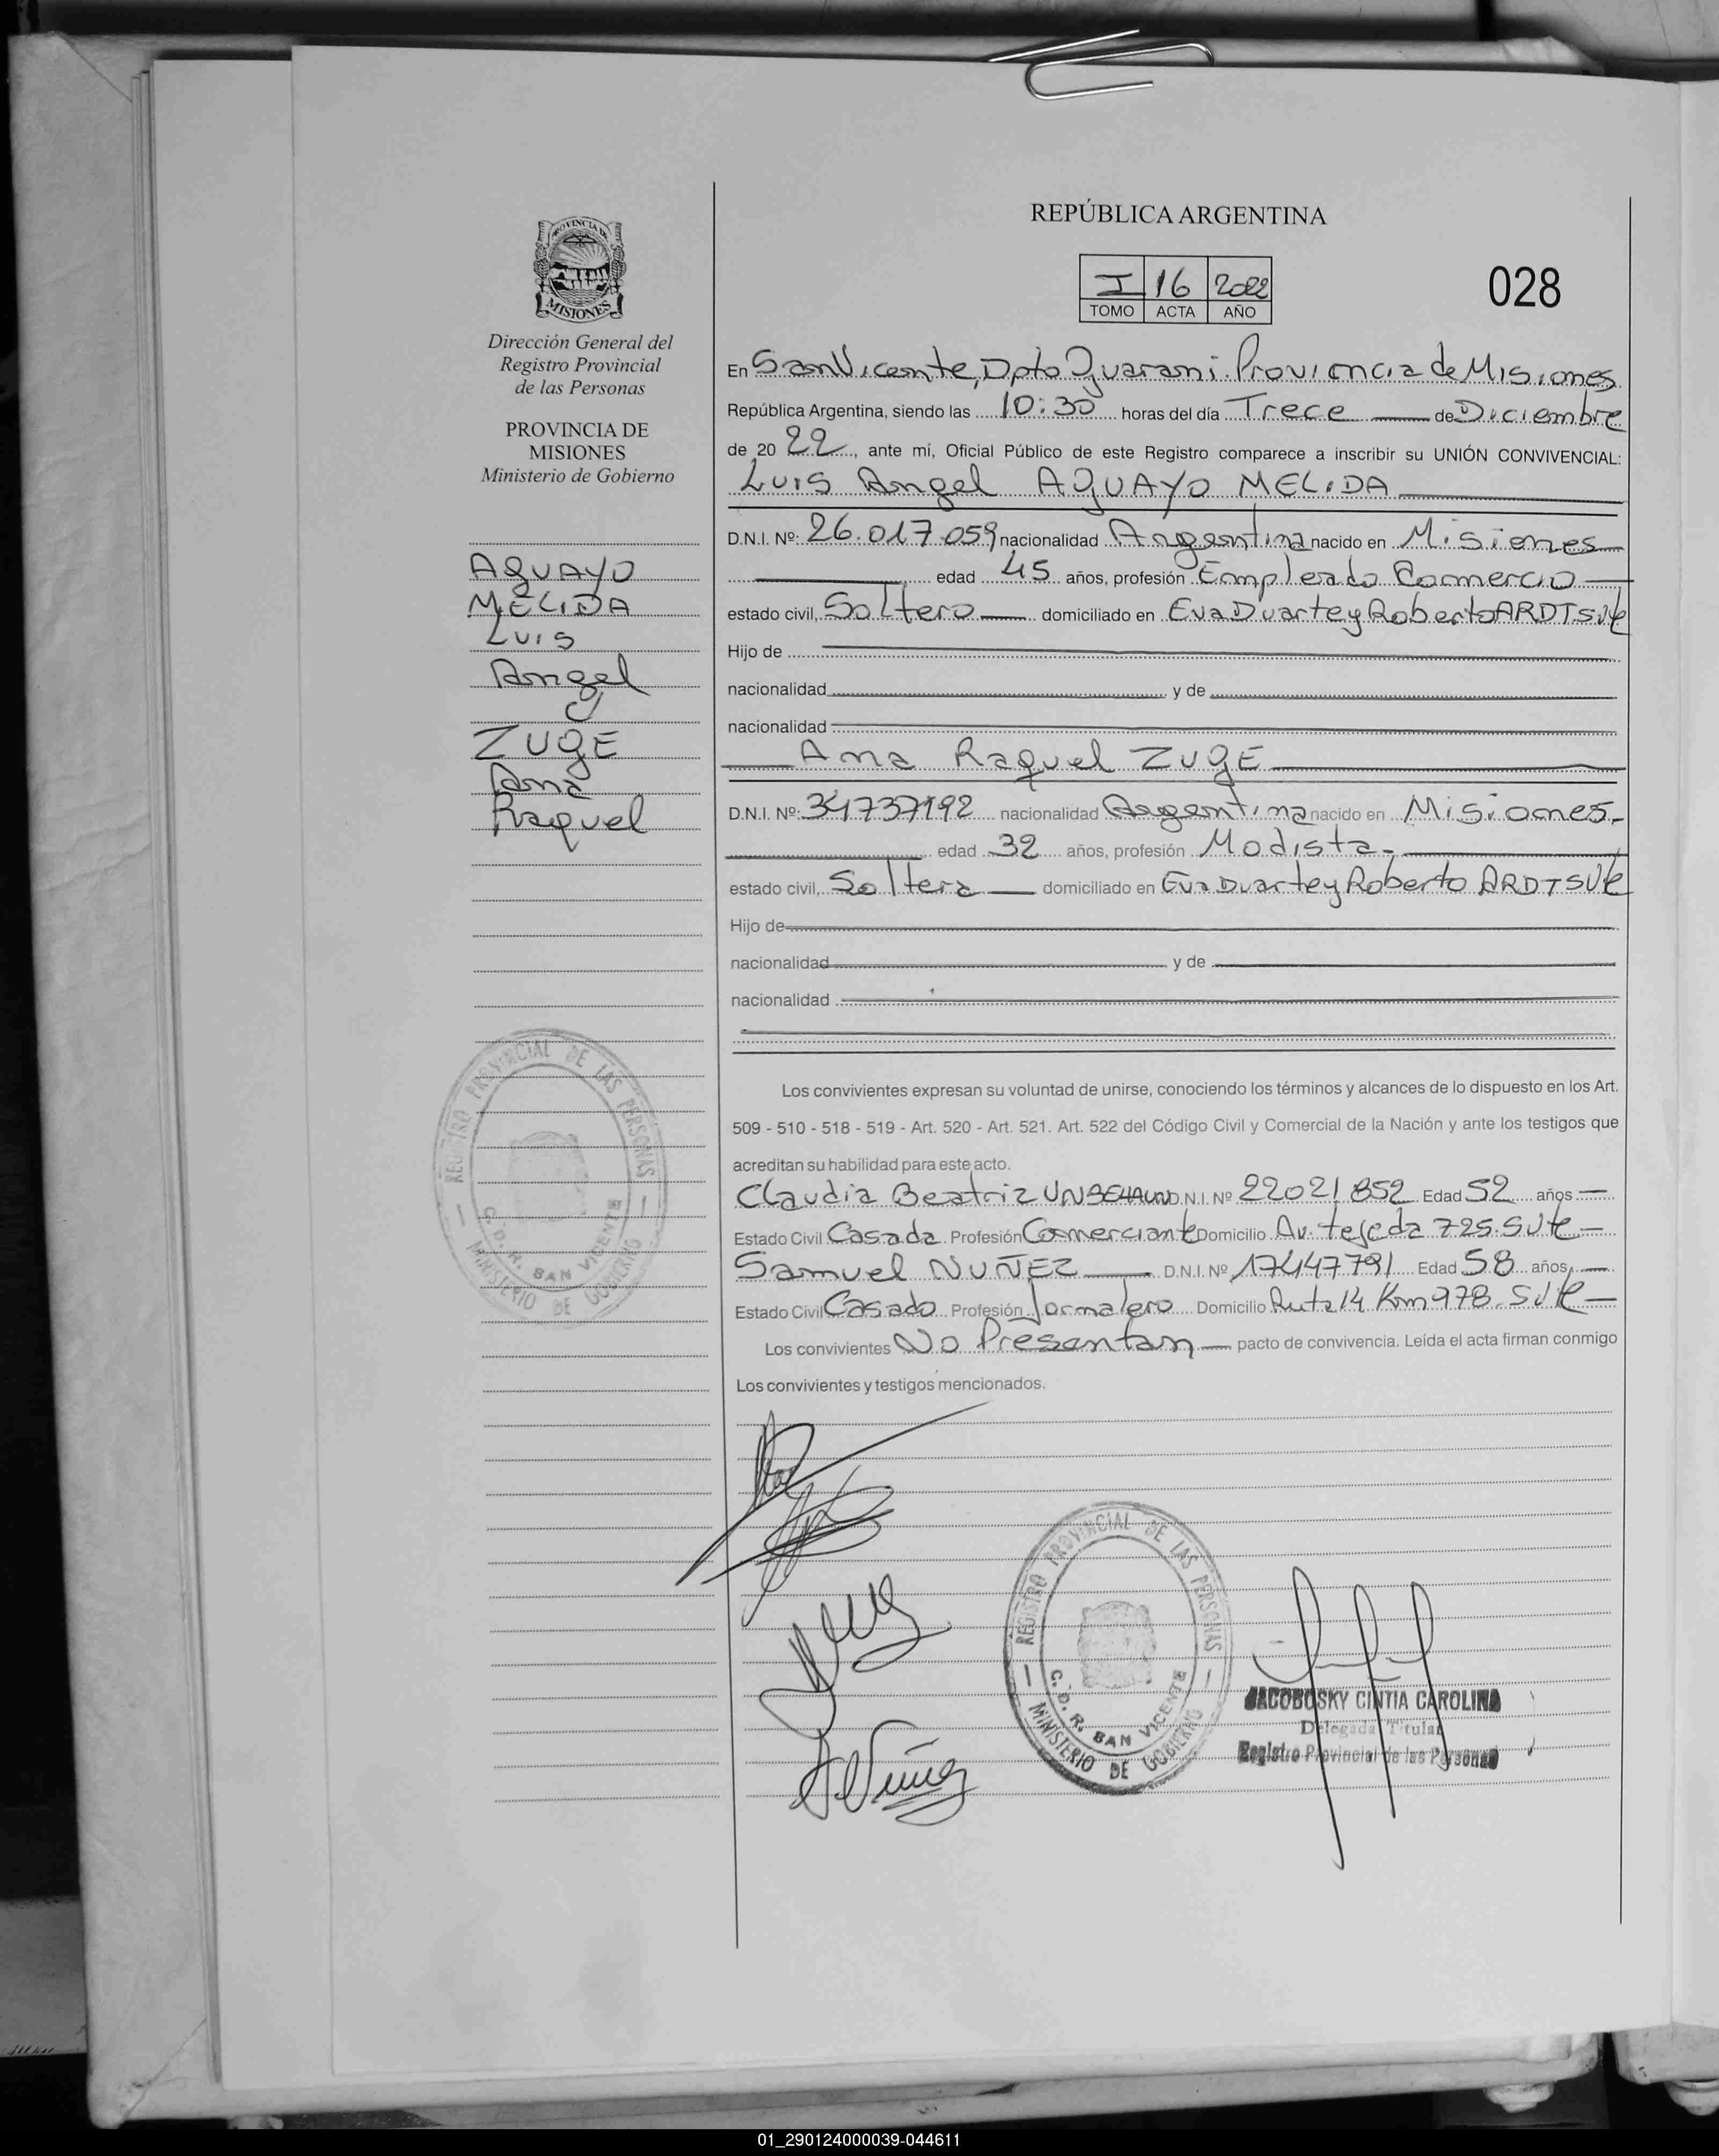 REPÚBLICA ARGENTINA
I 16 2022
TOMO ACTA AÑO
028
PROVINCIA DE
MISIONES
Dirección General del
Registro Provincial
de las Personas
PROVINCIA DE
MISIONES
Ministerio de Gobierno
AGUAYO
MELIDA
Luis
Angel
y
ZUGE
Ana
Raquel
REGISTRO PROVINCIAL DE LAS PERSONAS
C. D. R. SAN VICENTE
MINISTERIO DE GOBIERNO
En San Vicente, Dpto Guarani. Provincia de Misiones
República Argentina, siendo las 10:30 horas del día Trece de Diciembre
de 20 22, ante mí, Oficial Público de este Registro comparece a inscribir su UNIÓN CONVIVENCIAL:
Luis Angel AGUAYO MELIDA
D.N.I. Nº: 26.017.059 nacionalidad Argentina nacido en Misiones
edad 45 años, profesión Empleado Comercio
estado civil, Soltero domiciliado en Eva Duarte y Roberto ARDT S.Vte
Hijo de
nacionalidad y de
nacionalidad
Ana Raquel ZUGE
D.N.I. Nº: 34737192 nacionalidad Argentina nacido en Misiones.
edad 32 años, profesión Modista
estado civil, Soltera domiciliado en Eva Duarte y Roberto ARDT SVte
Hijo de
nacionalidad y de
nacionalidad
Los convivientes expresan su voluntad de unirse, conociendo los términos y alcances de lo dispuesto en los Art.
509 - 510 - 518 - 519 - Art. 520 - Art. 521. Art. 522 del Código Civil y Comercial de la Nación y ante los testigos que
acreditan su habilidad para este acto.
Claudia Beatriz UNBEHAUND D.N.I. Nº 22021852 Edad 52 años
Estado Civil Casada Profesión Comerciante Domicilio Av. tejeda 725. SVte
Samuel NUÑEZ D.N.I. Nº 17447791 Edad 58 años,
Estado Civil Casado Profesión Jornalero Domicilio Ruta 14 Km 978. SVte
Los convivientes No Presentan pacto de convivencia. Leída el acta firman conmigo
Los convivientes y testigos mencionados.
Nuñez
REGISTRO PROVINCIAL DE LAS PERSONAS
C. D. R. SAN VICENTE
MINISTERIO DE GOBIERNO
JACOBOSKY CINTIA CAROLINA
Delegada Titular
Registro Provincial de las Personas
01_290124000039-044611